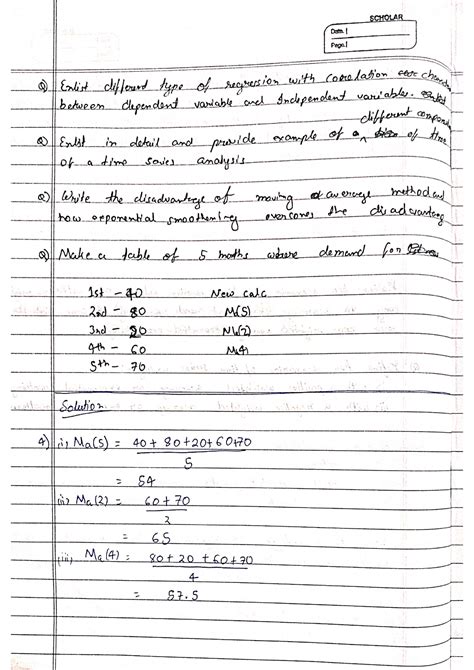 SCHOLAR
Date.
Page.
Q) Enlist different type of regression with Correlation
between dependent variable and Independent variables.
different
Q) Enlst in detail and provide example of a of time
of a time saves analysis
Q) Write the disadvantage of moving average method and
how exponential smoothening overcones the disadvantag
Q) Make a table of 5 moths where demand for
1st - 40 New calc
2nd - 80 M(5)
3rd - 20 M(2)
4th - 60 M(4)
5th - 70
Solution
4) (i) Ma(5) = 40 + 80 + 20 + 60 + 70
5
= 54
(ii) Ma(2) = 60 + 70
2
= 65
(iii) Ma(4) = 80 + 20 + 60 + 70
4
= 57.5